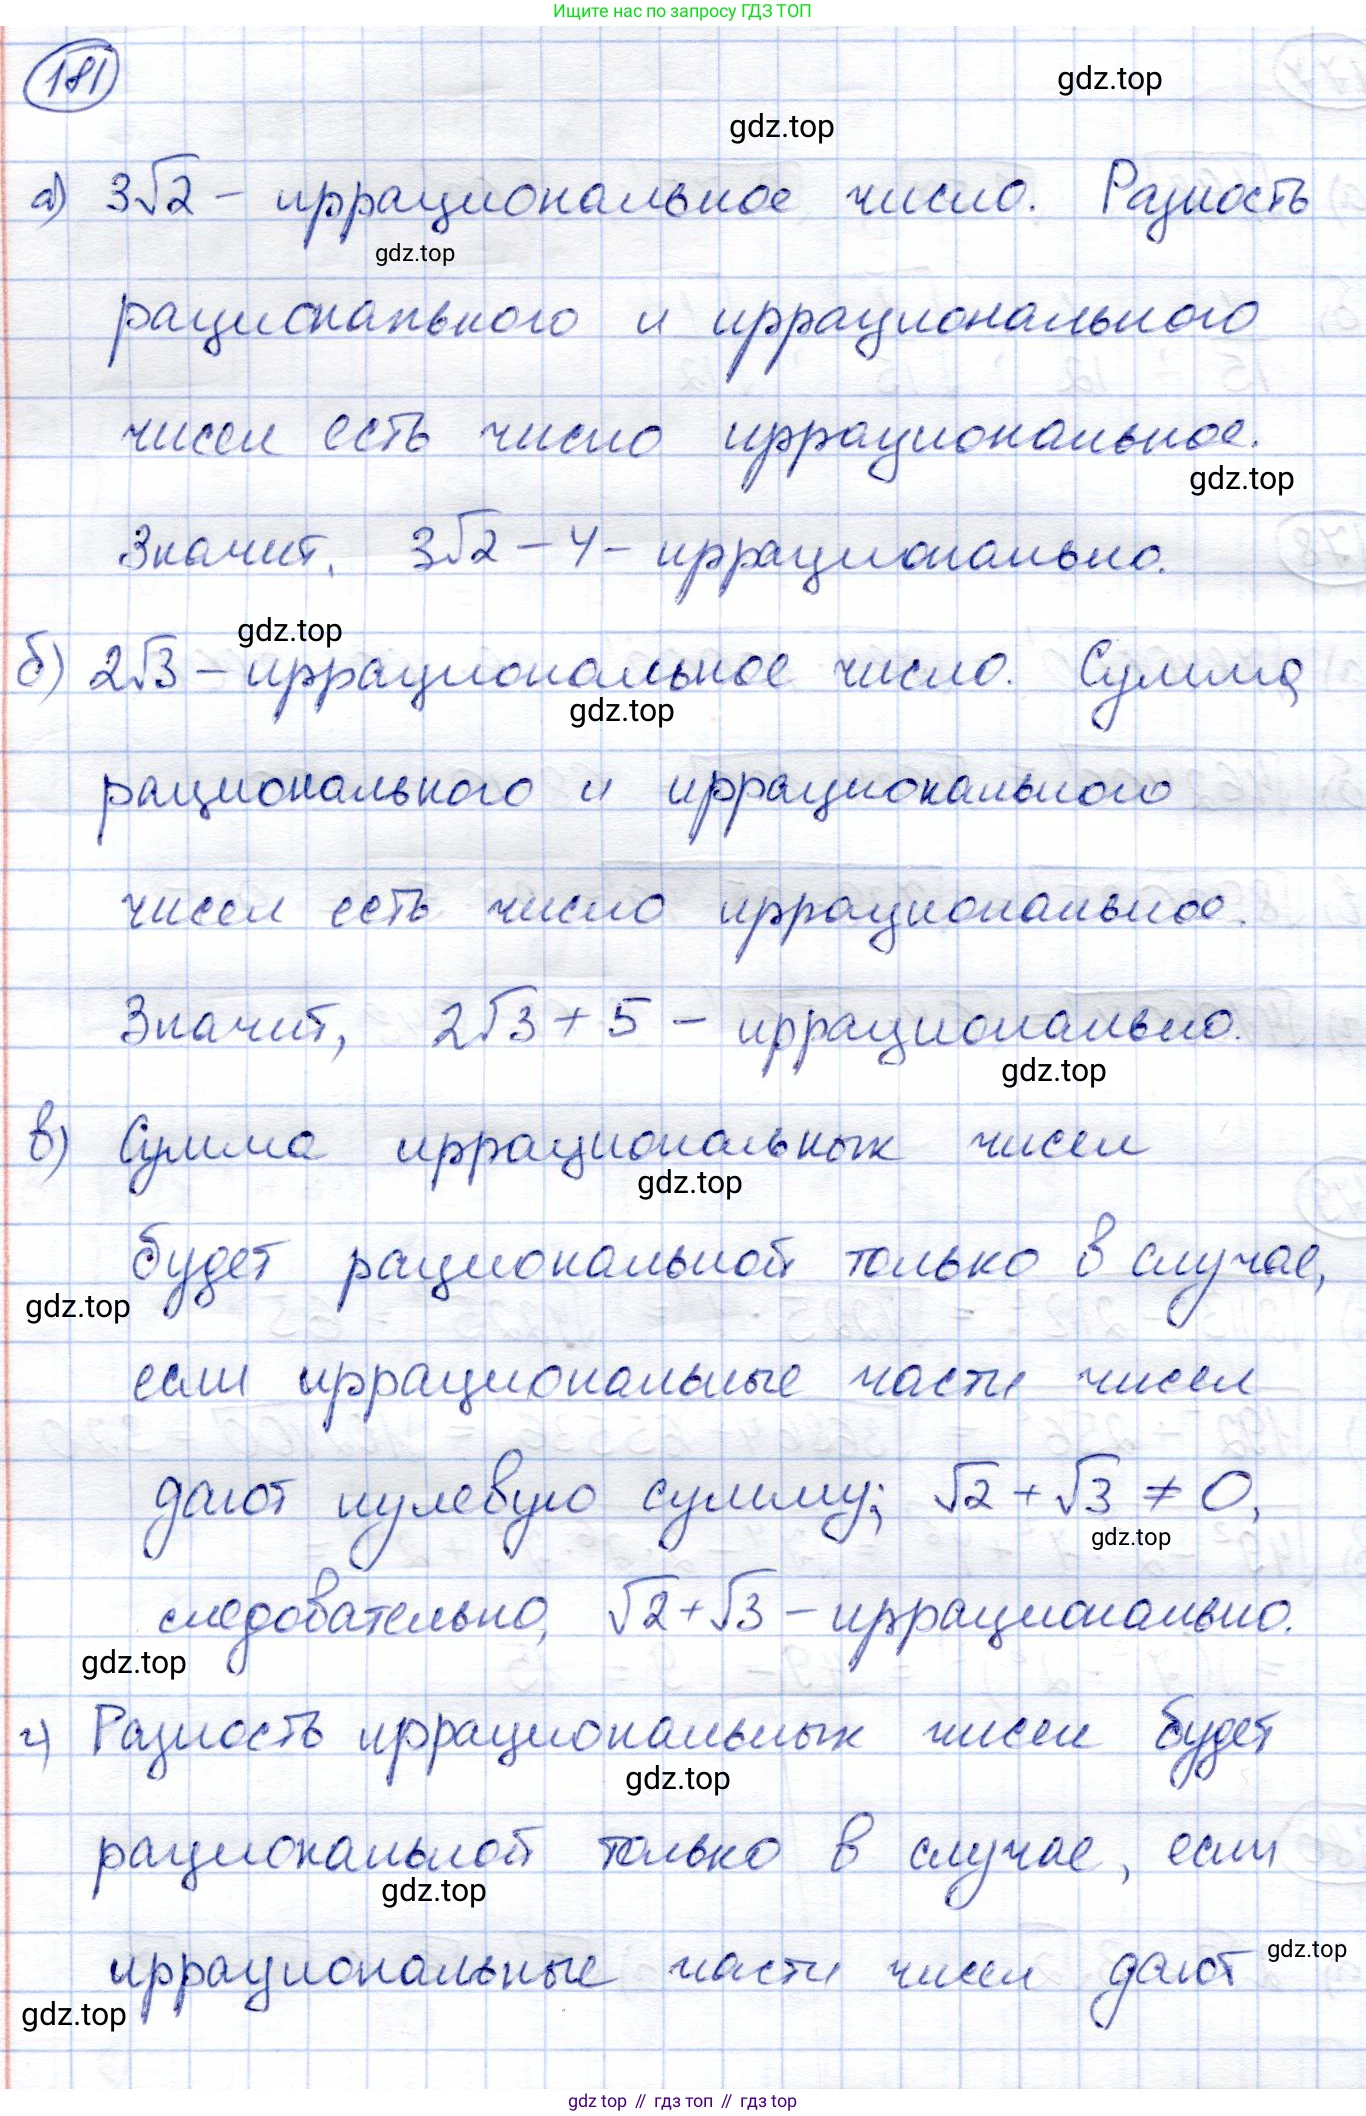 Ищите нас по запросу ГДЗ ТОП
181
gdz.top
gdz.top
а) 3√2 – иррациональное число. Разность
gdz.top
рационального и иррационального
чисел есть число иррациональное.
gdz.top
Значит, 3√2 – 4 – иррационально.
gdz.top
б) 2√3 – иррациональное число. Сумма
gdz.top
рационального и иррационального
чисел есть число иррациональное.
Значит, 2√3 + 5 – иррационально.
gdz.top
в) Сумма иррациональных чисел
gdz.top
будет рациональной только в случае,
gdz.top
если иррациональные части чисел
дают нулевую сумму; √2 + √3 ≠ 0,
gdz.top
следовательно, √2 + √3 – иррационально.
gdz.top
г) Разность иррациональных чисел будет
gdz.top
рациональной только в случае, если
gdz.top
иррациональные части чисел дают
gdz.top
gdz.top
gdz top // гдз топ // гдз top